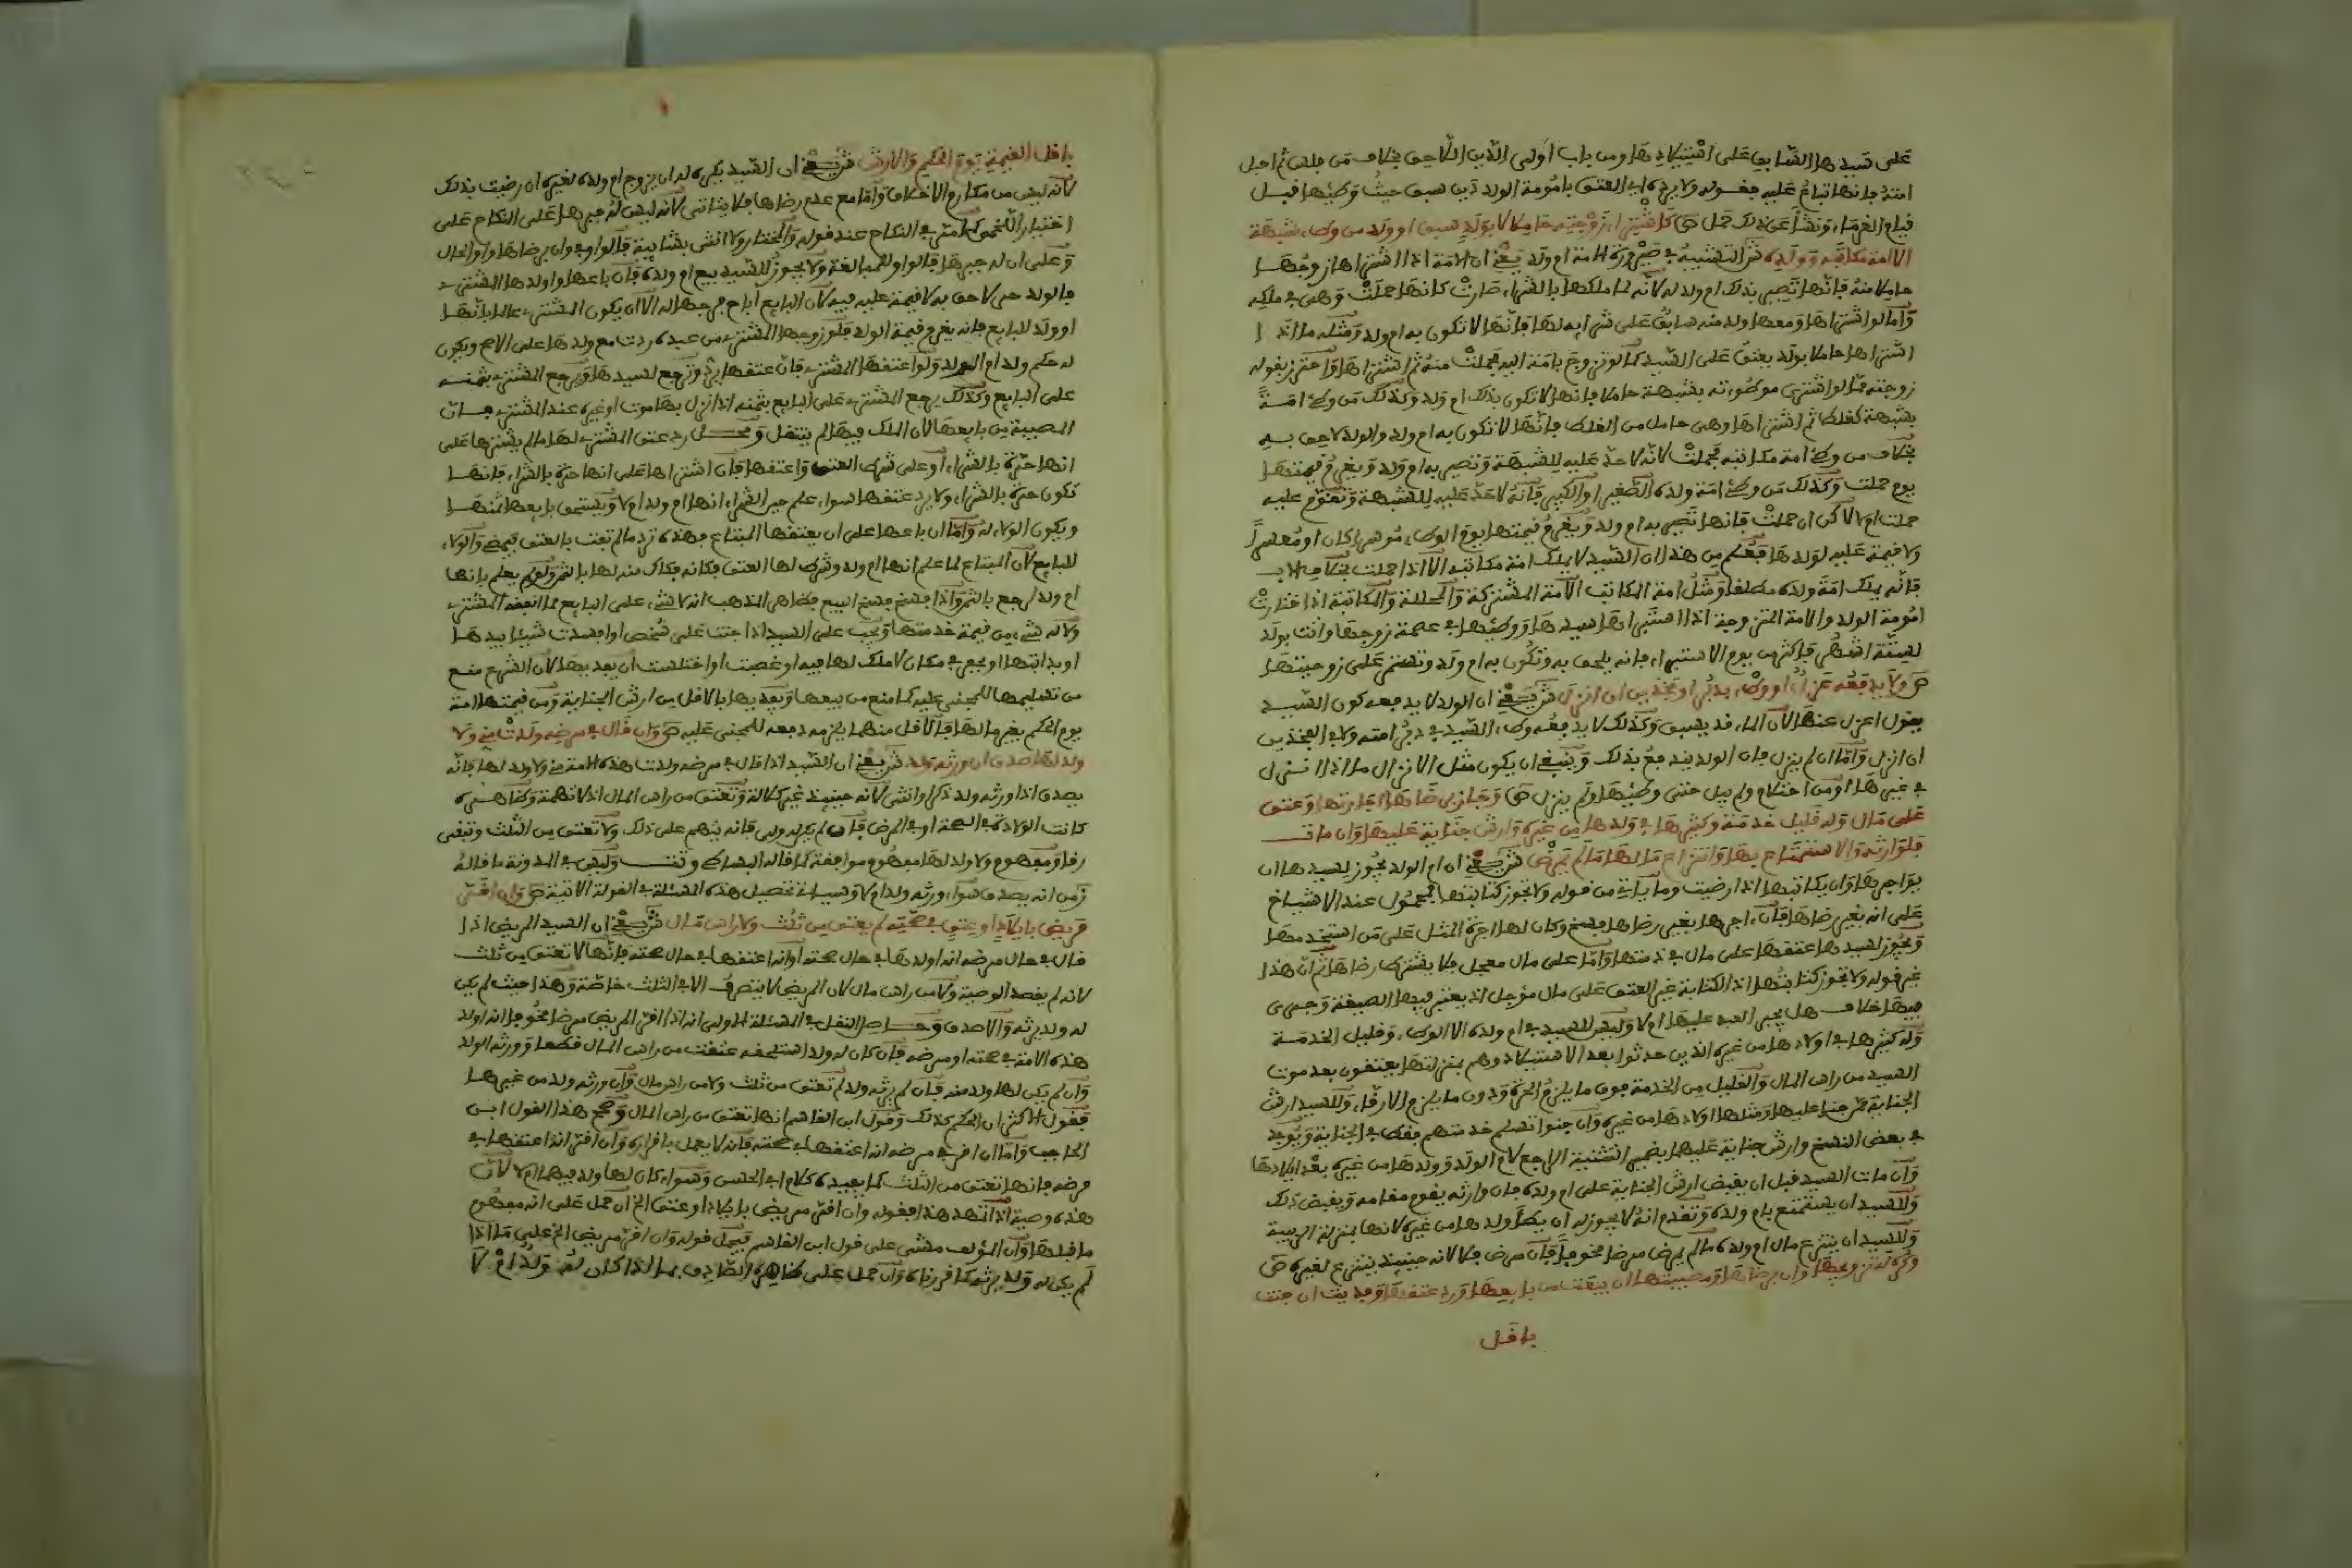 على سيدها السابق على استيلادها ومن باب اولى الدين اللاحق بخلاف من فلس ثم احبل
امته فانها تباع عليه فقوله ولا يرده اي العتق بامومة الولد دين سبق حيث وطئها قبل
قيام الغرماء ونشا عن ذلك حمل ص كاشتراء زوجته حاملا لا بولد سبق او ولد من وطء شبهة
الا امة مكاتبه وولده ش التشبيه في صيرورة الامة ام ولد يعني ان الامة اذا اشتراها زوجها
حاملا منه فانها تصير بذلك ام ولد له لانه لما ملكها بالشراء صارت كانها حملت وهي في ملكه
واما لو اشتراها ومعها ولد منه سابق على شرايه لها فانها لا تكون به ام ولد ومثله ما اذا
اشتراها حاملا بولد يعتق على السيد كما لو تزوج بامة ابيه فحملت منه ثم اشتراها واحترز بقوله
زوجته مما لو اشترى موطوءته بشبهة حاملا فانها لا تكون بذلك ام ولد وكذلك من وطئ امة
بشبهة كغلط ثم اشتراها وهي حامل من الغلط فانها لا تكون به ام ولد والولد لاحق به
بخلاف من وطئ امة مكاتبه فحملت لانه لا حد عليه للشبهة وتصير به ام ولد ويغرم قيمتها
يوم حملت وكذلك من وطئ امة ولده الصغير او الكبير فانه لا حد عليه للشبهة وتقوم عليه
حملت ام لا لاكن ان حملت فانها تصير به ام ولد ويغرم قيمتها يوم الوطء موسرا كان او معسرا
ولا قيمة عليه لولدها فعلم من هذا ان السيد لا يملك امة مكاتبه الا اذا حملت بخلاف الاب
فانه يملك امة ولده مطلقا ومثل امة المكاتب الامة المشتركة والمحللة والمكاتبة اذا اختارت
امومة الولد والامة المتزوجة اذا استبراها سيدها ووطئها في عصمة زوجها واتت بولد
لستة اشهر فاكثر من يوم الاستبراء فانه يلحق به وتكون به ام ولد وتستمر على زوجيتها
ص ولا يدفعه عزل او وطء بدبر او فخذين ان انزل ش يعني ان الولد لا يدفعه كون السيد
يقول اعزل عنها لان الماء قد يسبق وكذلك لا يدفعه وطء السيد في دبر امته ولا في الفخذين
ان انزل واما ان لم ينزل فان الولد يندفع بذلك وينبغي ان يكون مثل الانزال ما اذا انزل
في غيرها او من احتلام ولم يبل حتى وطئها ولم ينزل ص وجاز برضاها اجارتها وعتق
على مال وله قليل خدمة وكثيرها في ولدها من غيره وارش جناية عليهما وان مات
فلوارثه والاستمتاع بها وانتزاع مالها ما لم يمرض ش يعني ان ام الولد يجوز لسيدها ان
يواجرها وان يكاتبها اذا رضيت وما ياتي من قوله ولا تجوز كتابتها محمول عند الاشياخ
على انه بغير رضاها فان اجرها بغير رضاها فسخ وكان لها اجرة المثل على من استخدمها
ويجوز لسيدها عتقها على مال في ذمتها واما على مال معجل فلا يشترط رضاها ثم ان هذا
غير قوله ولا تجوز كتابتها اذ الكتابة غير العتق على مال مؤجل اذ يعتبر فيها الصيغة وجرى
فيها خلاف هل يجبر العبد عليها ام لا وليس للسيد في ام ولده الا الوطء وقليل الخدمة
وله كثيرها في اولادها من غيره الذين حدثوا بعد الاستيلاد وهم بمنزلتها يعتقون بعد موت
السيد من راس المال والقليل من الخدمة فوق ما يلزم الحرة ودون ما يلزم الارقاء وللسيد ارش
الجناية ممن جنا عليها ومثلها اولادها من غيره وان جنوا تسلم خدمتهم فقط في الجناية ويوجد
في بعض النسخ وارش جناية عليهما بضمير التثنية الراجع لام الولد وولدها من غيره بعد ايلادها
وان مات السيد قبل ان يقبض ارش الجناية على ام ولده فان وارثه يقوم مقامه ويقبض ذلك
وللسيد ان يستمتع بام ولده وتقدم انه لا يجوز له ان يطا ولدها من غيره لانها بمنزلة الربيبة
وللسيد ان ينتزع مال ام ولده ما لم يمرض مرضا مخوفا فان مرض فلا لانه حينئذ ينتزع لغيره ص
وكره له تزويجها وان برضاها ومصيبتها ان بيعت من بايعها ورد عتقها وفديت ان جنت
باقل
باقل القيمة يوم الحكم والارش ش يعني ان السيد يكره له ان يزوج ام ولده لغيره ان رضيت بذلك
لانه ليس من مكارم الاخلاق واما مع عدم رضاها فلا يتاتى لانه ليس له جبرها على النكاح على
اختيار اللخمي كما مر في النكاح عند قوله والمختار ولا انثى بشايبة فالواو في وان برضاها واو الحال
وعلى ان له جبرها فالواو للمبالغة ولا يجوز للسيد بيع ام ولده فان باعها واولدها المشتري
فالولد حر لاحق به لا قيمة عليه فيه لان البايع اباح فرجها له الا ان يكون المشتري عالما بانها
ام ولد للبايع فانه يغرم قيمة الولد فلو زوجها المشتري من عبده ردت مع ولدها على الاصح ويكون
له حكم ولد ام الولد ولو اعتقها المشتري فان عتقها يرد وترجع لسيدها ويرجع المشتري بثمنه
على البايع وكذلك يرجع المشتري على البايع بثمنه اذا نزل بها موت او غيره عند المشتري فان
المصيبة من بايعها لان الملك فيها لم ينتقل ومحل رد عتق المشتري لها ما لم يشترها على
انها حرة بالشراء او على شرط العتق واعتقها فان اشتراها على انها حرة بالشراء فانها
تكون حرة بالشراء ولا يرد عتقها سواء علم حين الشراء انها ام ولد ام لا ويستحق بايعها ثمنها
ويكون الولاء له واما ان باعها على ان يعتقها المبتاع فهذه ترد ما لم تفت بالعتق فيمضي والولاء
للبايع لان المبتاع لما علم انها ام ولد وشرط لها العتق فكانه فكاك منه لها بالثمن ولو لم يعلم بانها
ام ولد لرجع بالثمن واذا فسخ فسخ البيع فظاهر المذهب انه لا شيء على البايع مما انفقه المشتري
ولا له شيء من قيمة خدمتها ويجب على السيد اذا جنت على شخص او افسدت شيئا بيدها
او بدابتها او بحفر في مكان لا ملك لها فيه او غصبت او اختلست ان يفديها لان الشرع منع
من تسليمها للمجني عليه كما منع من بيعها ويفديها بالاقل من ارش الجناية ومن قيمتها امة
يوم الحكم بغير مالها فالاقل منهما يلزمه دفعه للمجني عليه ص وان قال في مرضه ولدت مني ولا
ولد لها صدق ان ورثه ولد ش يعني ان السيد اذا قال في مرضه ولدت هذه الامة مني ولا ولد لها فانه
يصدق اذا ورثه ولد ذكر او انثى لانه حينئذ غير كلالة وتعتق من راس المال اذ لا تهمة وظاهره
كانت الولادة في الصحة او في المرض فان لم يكن له ولد فانه يتهم على ذلك ولا تعتق من الثلث وتبقى
رقا ومفهوم ولا ولد لها مفهوم موافقة كما قاله البساطي وتت وليس في المدونة ما قاله
ز من انه يصدق سواء ورثه ولد ام لا وسياتي تحصيل هذه المسئلة في القولة الاتية ص وان اقر
مريض بايلاد او عتق في صحته لم يعتق من ثلث ولا راس مال ش يعني ان السيد المريض اذا
قال في حال مرضه انه اولدها في حال صحته او انه اعتقها في حال صحته فانها لا تعتق من ثلث
لانه لم يقصد الوصية ولا من راس مال لان المريض لا يتصرف الا في الثلث خاصة وهذا حيث لم يكن
له ولد يرثه والا صدق وحاصل النقل في المسئلة الاولى انه اذا اقر المريض مرضا مخوفا انه اولد
هذه الامة في صحته او مرضه فان كان له ولد استلحقه عتقت من راس المال قطعا وورثه الولد
وان لم يكن لها ولد منه فان لم يرثه ولد لم تعتق من ثلث ولا من راس مال وان ورثه ولد من غيرها
فقول الاكثر ان الحكم كذلك وقول ابن القاسم انها تعتق من راس المال وصحح هذا القول ابن
الحاجب واما ان اقر في مرضه انه اعتقها في صحته فانه لا يعمل باقراره وان اقر انه اعتقها في
مرضه فانها تعتق من الثلث كما يفيده كلام ابي الحسن وسواء كان لها ولد فيهما ام لا لان
هذه وصية اذا اتهد هذا فقوله وان اقر مريض بايلاد او عتق الخ ان حمل على انه مفهوم
ما قبلها وان المؤلف مشى على قول ابن القاسم فيحمل قوله وان اقر مريض الخ على ما اذا
لم يكن له ولد يرثه كما قررناه وان حمل على ظاهره الصادق بما اذا كان له ولد ام لا